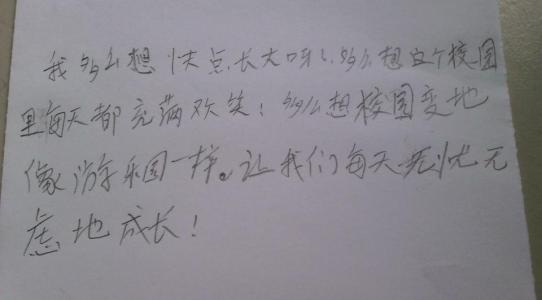 我多么想快点长大呀！多么想这个校园
里每天都充满欢笑！多么想校园变地
像游乐园一样。让我们每天无忧无
虑地成长！